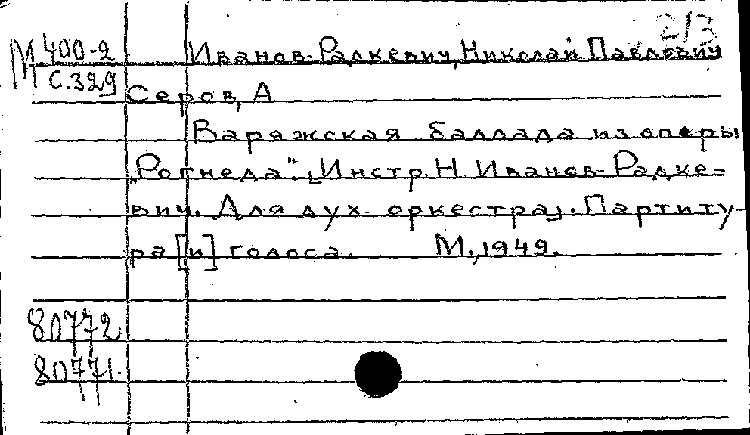 2/3
М 400-2 Иванов-Радкевич, Николай Павлович
С.329
Серов, А
Варяжская баллада из оперы
„Рогнеда". [Инстр. Н Иванов-Радке=
вич. Для дух. оркестра]. Партиту-
ра [и] голоса. М., 1949.
80772
80771